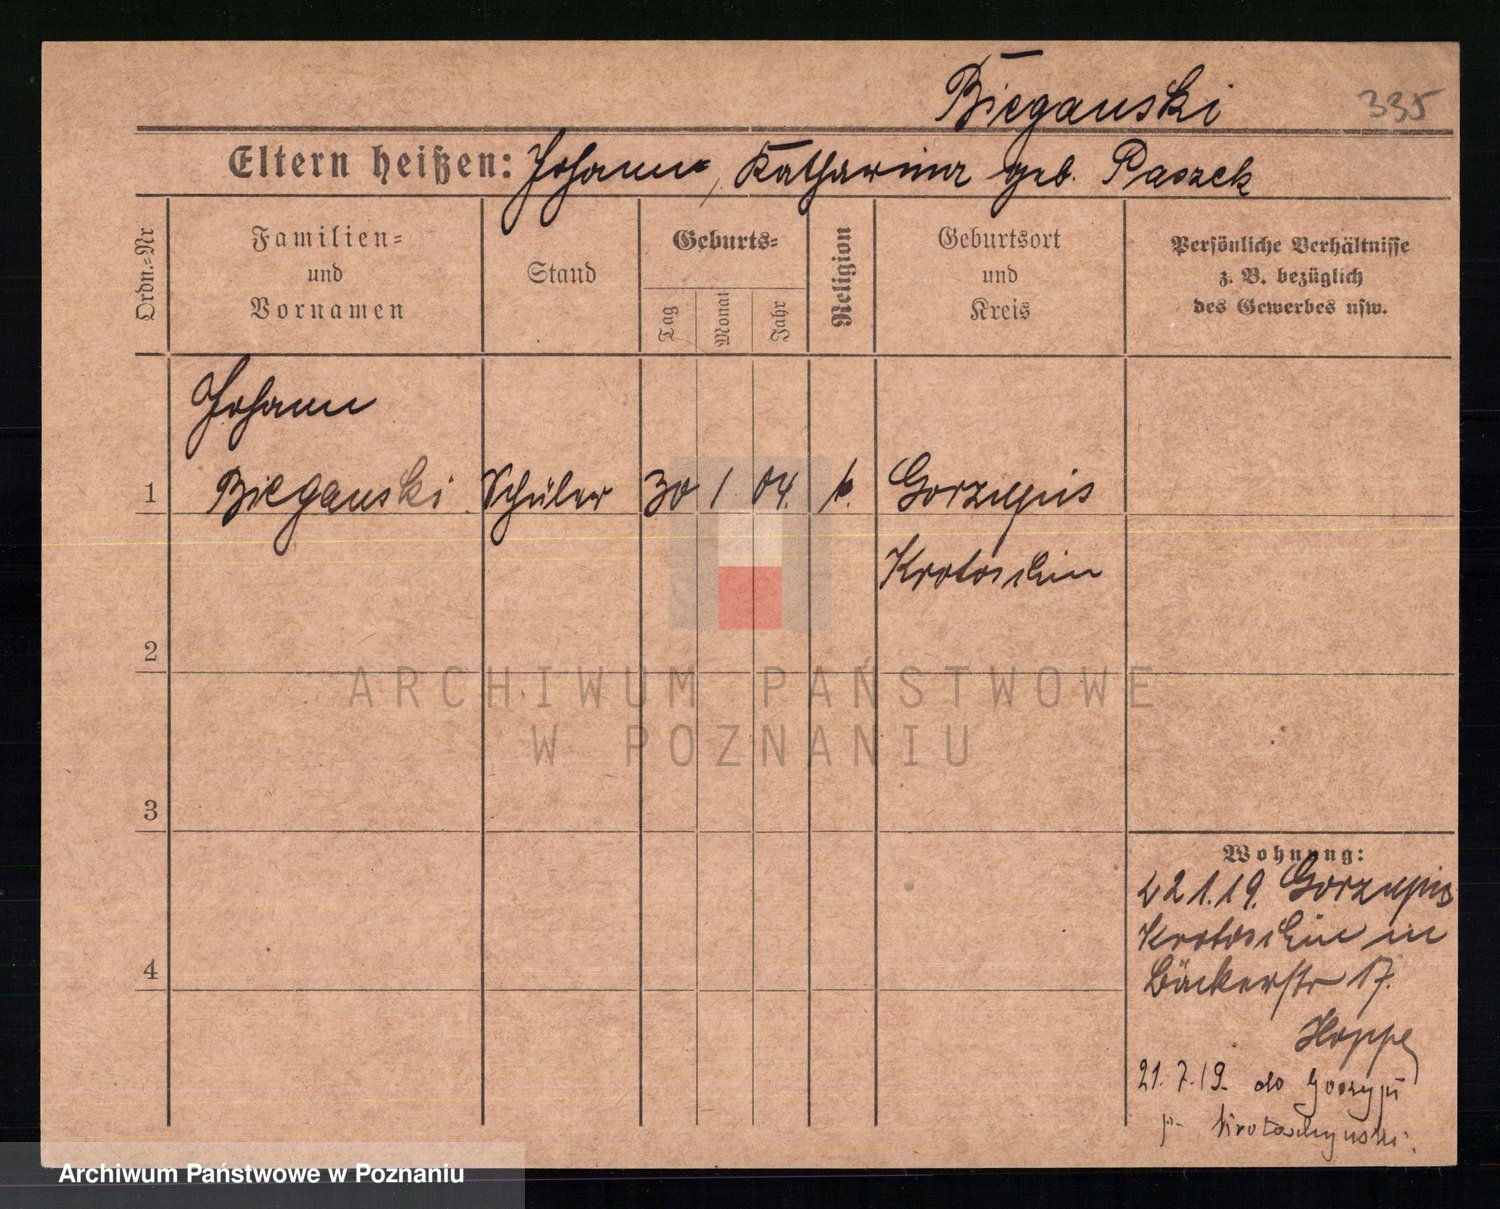 Bieganski 335
Eltern heißen: Johann, Katharina geb. Paszek
Ordn.=Nr
Familien=
und
Vornamen
Stand
Geburts=
Tag
Monat
Jahr
Religion
Geburtsort
und
Kreis
Persönliche Verhältnisse
z. B. bezüglich
des Gewerbes usw.
Johann
1 Bieganski Schüler 30 1 04. k. Gorzupis
Krotoschin
2
3
4
Wohnung:
22.1.19. Gorzupis
Krotoschin in
Bäckerstr 17.
Hoppe
21.7.19. do
p. Krotoschyński.
ARCHIWUM PAŃSTWOWE
W POZNANIU
Archiwum Państwowe w Poznaniu